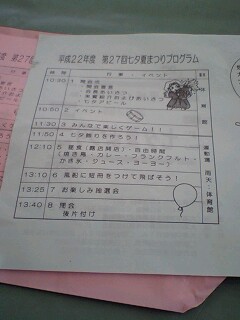 平成22年度 第27回七夕夏まつりプログラム
時間 行事・イベント
10:30 1 開会式
・開会宣言
10:50 2 イベント
11:30 3 みんなで楽しくゲーム!!
11:50 4 七夕飾りを作ろう!
12:10 5 昼食(露店開店)・自由時間
(焼き鳥・カレー・フランクフルト・
かき氷・ジュース・ヨーヨー)
13:10 6 風船に短冊をつけて飛ばそう!
13:25 7 お楽しみ抽選会
13:40 8 閉会
後片付け
体育館
運動場 雨天 体育館
度 第27回